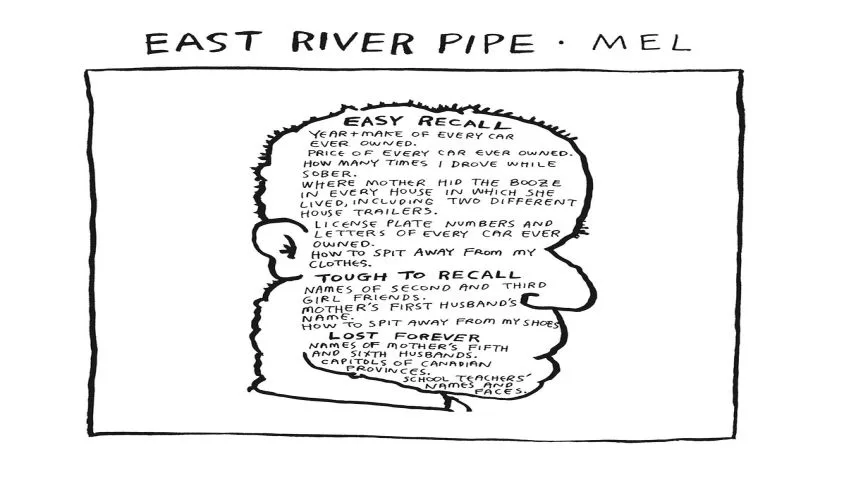 EAST RIVER PIPE · MEL
EASY RECALL
YEAR + MAKE OF EVERY CAR
EVER OWNED.
PRICE OF EVERY CAR EVER OWNED.
HOW MANY TIMES I DROVE WHILE
SOBER.
WHERE MOTHER HID THE BOOZE
IN EVERY HOUSE IN WHICH SHE
LIVED, INCLUDING TWO DIFFERENT
HOUSE TRAILERS.
LICENSE PLATE NUMBERS AND
LETTERS OF EVERY CAR EVER
OWNED.
HOW TO SPIT AWAY FROM MY
CLOTHES.
TOUGH TO RECALL
NAMES OF SECOND AND THIRD
GIRL FRIENDS.
MOTHER'S FIRST HUSBAND'S
NAME.
HOW TO SPIT AWAY FROM MY SHOES
LOST FOREVER
NAMES OF MOTHER'S FIFTH
AND SIXTH HUSBANDS.
CAPITOLS OF CANADIAN
PROVINCES.
SCHOOL TEACHERS'
NAMES AND
FACES.